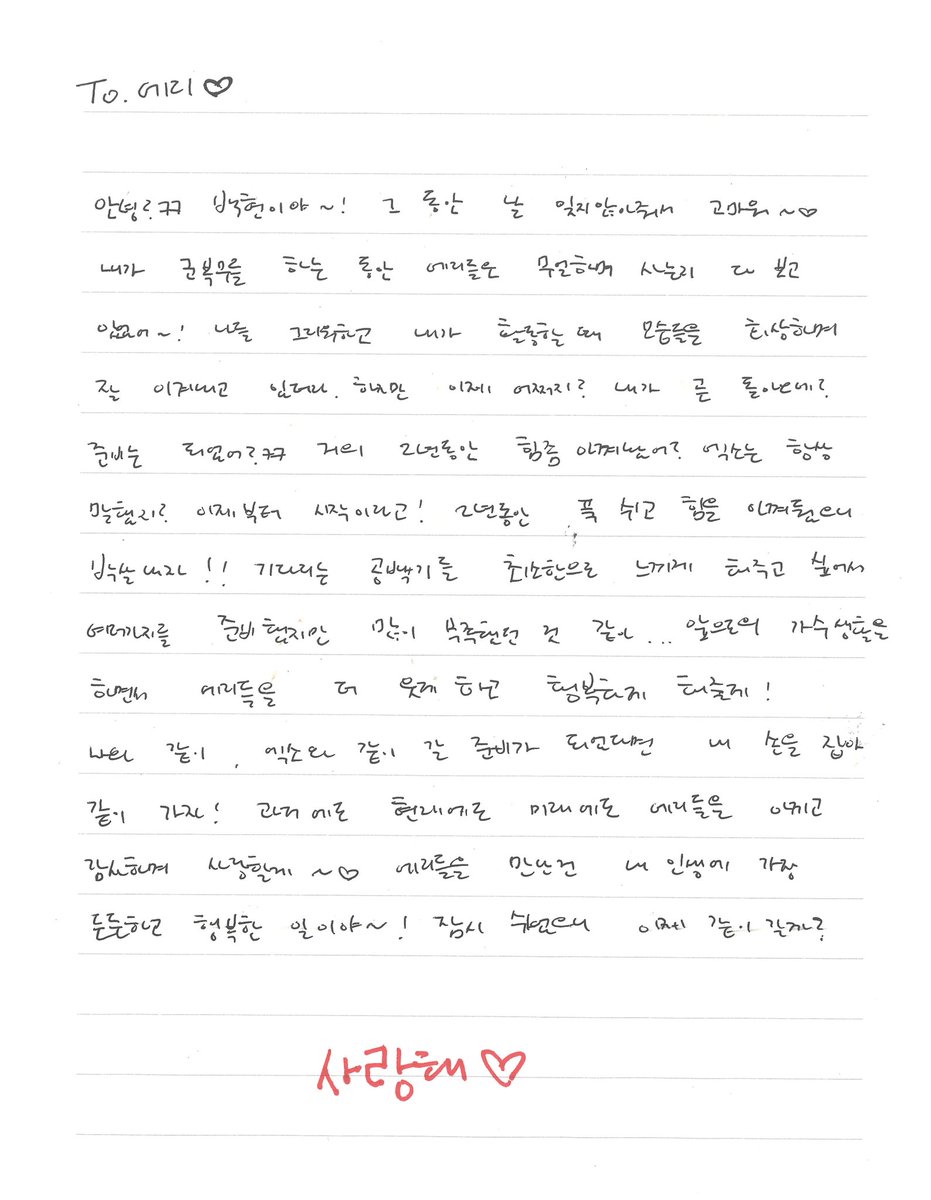 To. 에리♡
안녕?ㅋㅋ 백현이야~! 그 동안 날 잊지않아줘서 고마워~♡
내가 군복무를 하는 동안 에리들은 무얼하며 사는지 다 보고
있었어~! 나를 그리워하고 내가 활동하는 때 모습들을 회상하며
잘 이겨내고 있더라. 하지만 이제 어쩌지? 내가 곧 돌아년데?
준비는 되었어?ㅋㅋ 거의 2년동안 힘좀 아껴놨어? 엑소는 항상
말했지? 이제부터 시작이라고! 2년동안 푹 쉬고 힘을 아껴뒀으니
박살내자!! 기다리는 공백기를 최소한으로 느끼게 해주고 싶어서
여러가지를 준비했지만 많이 부족했던 것 같아... 앞으로의 가수생활을
하면서 에리들을 더 웃게 하고 행복하게 해줄게!
나와 같이, 엑소와 같이 갈 준비가 되었다면 내 손을 잡아
같이 가자! 과거에도 현재에도 미래에도 에리들을 아끼고
감사하며 사랑할게~♡ 에리들을 만난건 내 인생에 가장
든든하고 행복한 일이야~! 잠시 쉬었으니 이제 같이 갈까?
사랑해♡